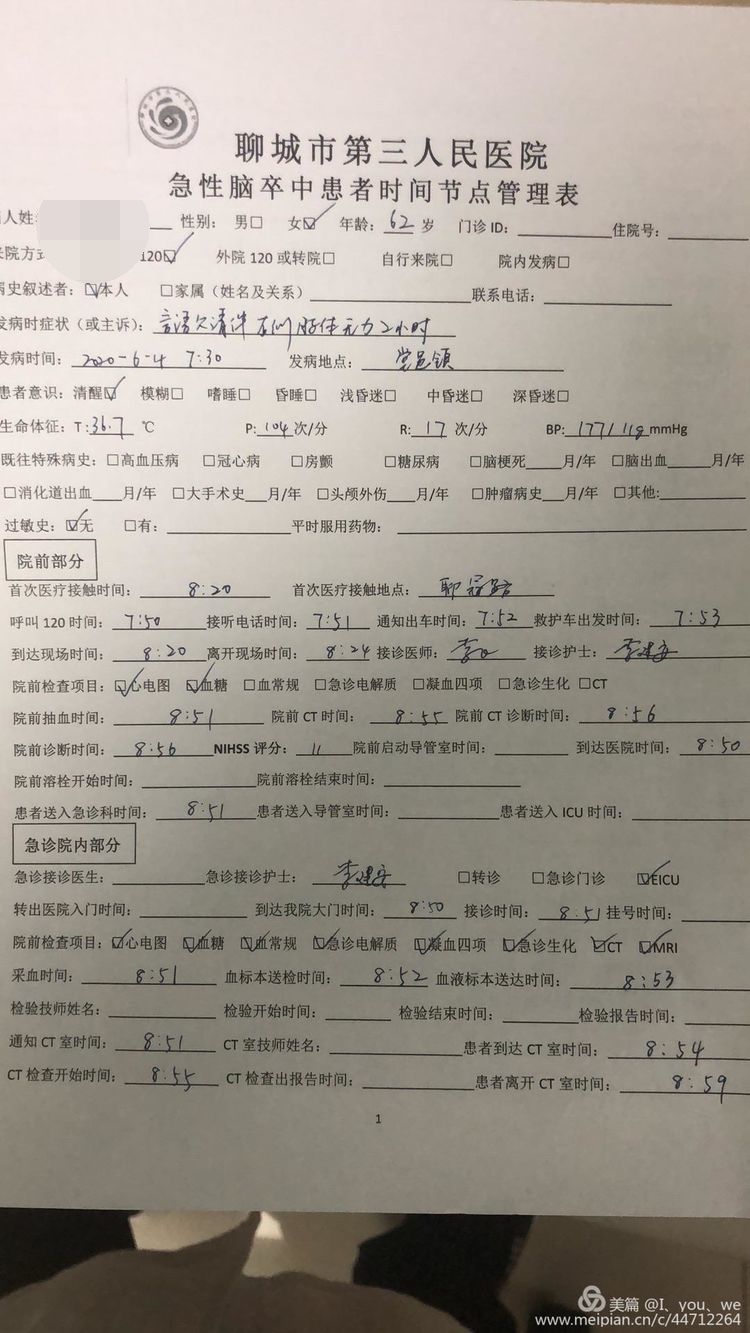 聊城市第三人民医院
急性脑卒中患者时间节点管理表
性别： 男□ 女☑ 年龄：62岁 门诊 ID：____ 住院号：____
来院方式 120☑ 外院 120 或转院□ 自行来院□ 院内发病□
病史叙述者：☑本人 □家属（姓名及关系）____ 联系电话：____
发病时症状（或主诉）：言语欠清伴右侧肢体无力2小时
发病时间：2020-6-4 7:30 发病地点：堂邑镇
患者意识：清醒☑ 模糊□ 嗜睡□ 昏睡□ 浅昏迷□ 中昏迷□ 深昏迷□
生命体征：T：36.7 ℃ P：104次/分 R：17 次/分 BP：177/118mmHg
既往特殊病史：□高血压病 □冠心病 □房颤 □糖尿病 □脑梗死____月/年 □脑出血____月/年
□消化道出血____月/年 □大手术史____月/年 □头颅外伤____月/年 □肿瘤病史____月/年 □其他：____
过敏史：☑无 □有：____ 平时服用药物：____
院前部分
首次医疗接触时间：8:20 首次医疗接触地点：聊冠路
呼叫 120 时间：7:50 接听电话时间：7:51 通知出车时间：7:52 救护车出发时间：7:53
到达现场时间：8:20 离开现场时间：8:24 接诊医师：李 接诊护士：李建安
院前检查项目：☑心电图 ☑血糖 □血常规 □急诊电解质 □凝血四项 □急诊生化 □CT
院前抽血时间：8:51 院前 CT 时间：8:55 院前 CT 诊断时间：8:56
院前诊断时间：8:56 NIHSS 评分：11 院前启动导管室时间：____ 到达医院时间：8:50
院前溶栓开始时间：____ 院前溶栓结束时间：____
患者送入急诊科时间：8:51 患者送入导管室时间：____ 患者送入 ICU 时间：____
急诊院内部分
急诊接诊医生：____ 急诊接诊护士：李建安 □转诊 □急诊门诊 ☑EICU
转出医院入门时间：____ 到达我院大门时间：8:50 接诊时间：8:51 挂号时间：____
院前检查项目：☑心电图 ☑血糖 ☑血常规 ☑急诊电解质 ☑凝血四项 ☑急诊生化 ☑CT ☑MRI
采血时间：8:51 血标本送检时间：8:52 血液标本送达时间：8:53
检验技师姓名：____ 检验开始时间：____ 检验结束时间：____ 检验报告时间：____
通知 CT 室时间：8:51 CT 室技师姓名：____ 患者到达 CT 室时间：8:54
CT 检查开始时间：8:55 CT 检查出报告时间：____ 患者离开 CT 室时间：8:59
1
美篇 @I、you、we
www.meipian.cn/c/44712264